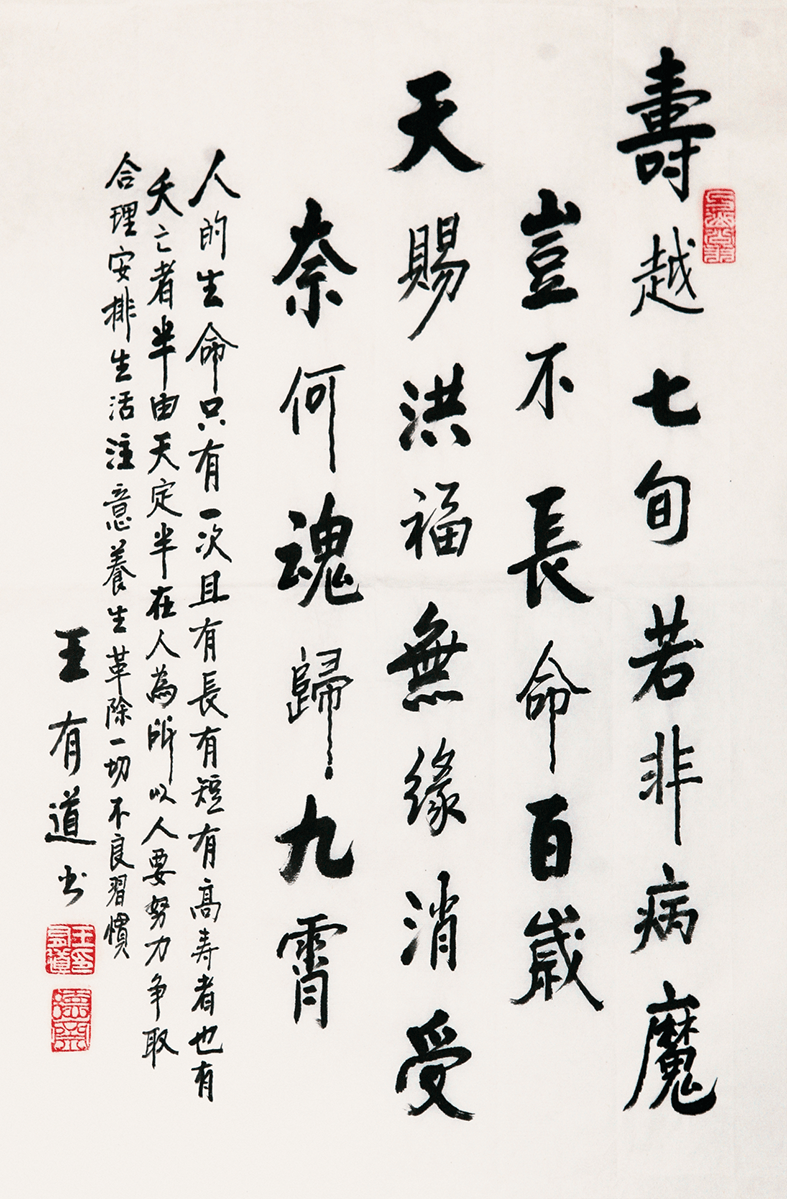 壽越七旬若非病魔
豈不長命百歲
天賜洪福無緣消受
奈何魂歸九霄
人的生命只有一次且有長有短有高寿者也有
夭亡者半由天定半在人為所以人要努力争取
合理安排生活注意養生革除一切不良習慣
王有道书